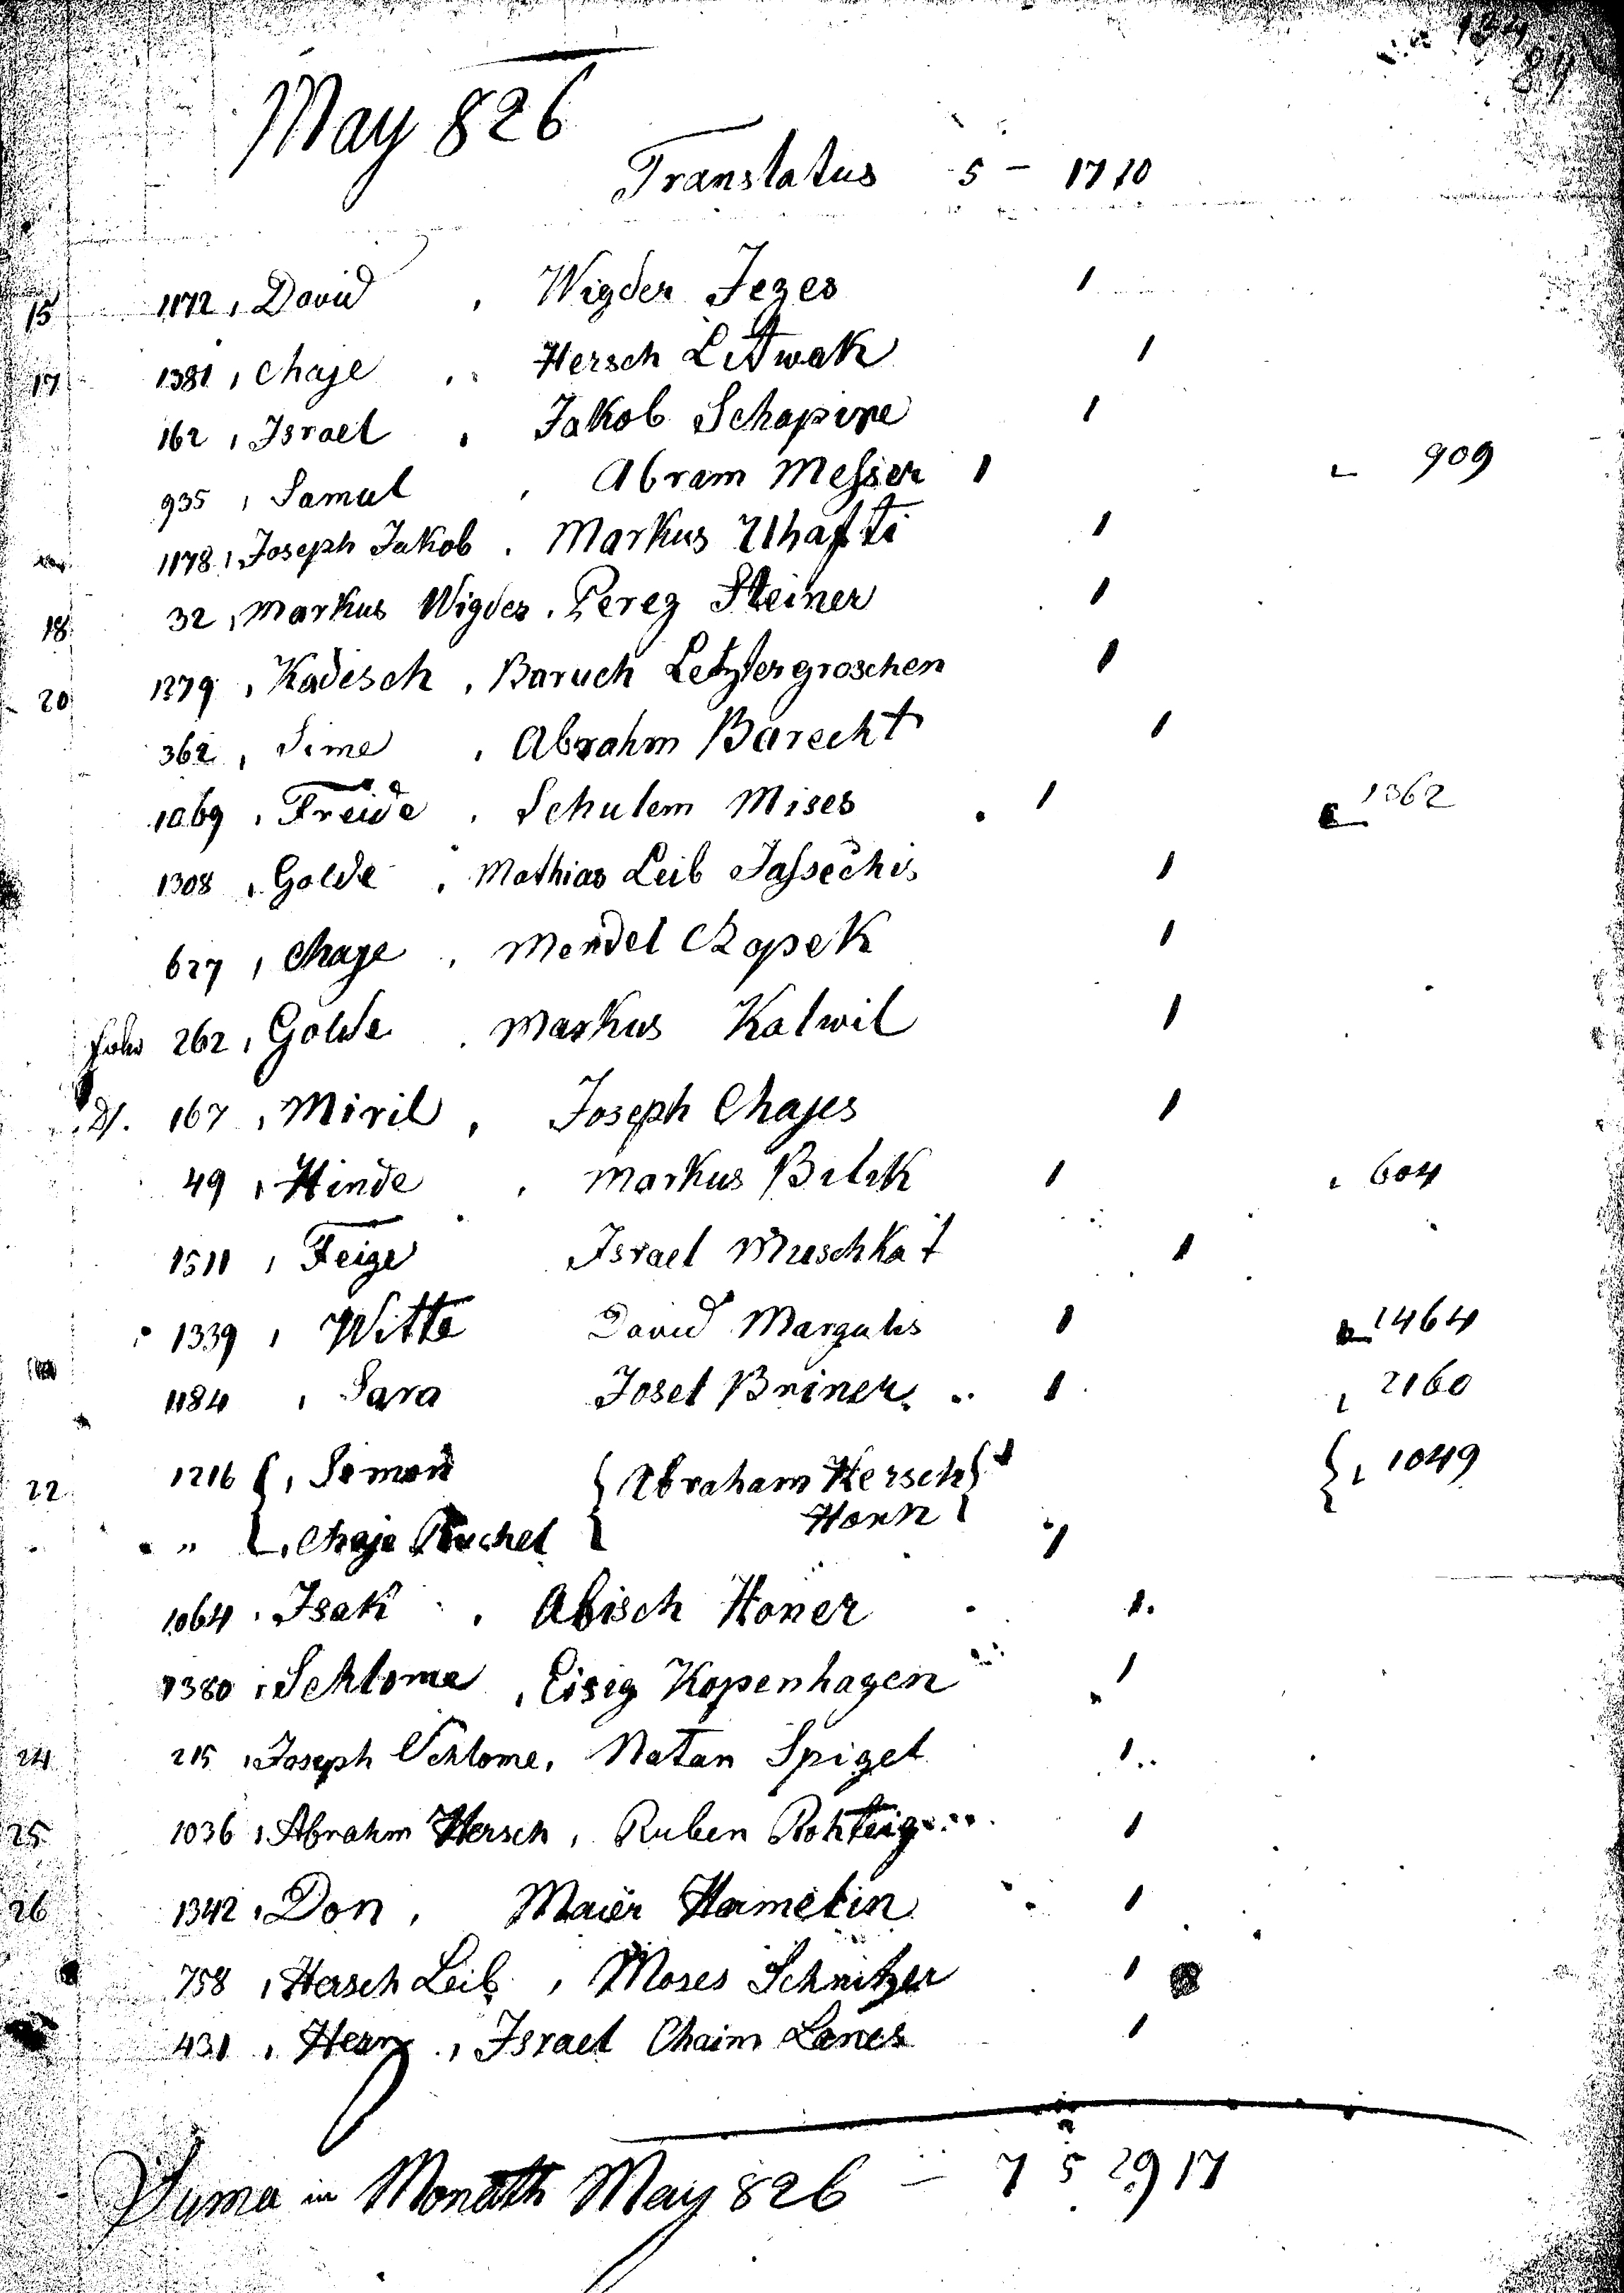 134
84
May 826
Translatus 5 - 17 10
15 1172 , David , Wigder Jezes 1
17 1381 , Chaje , Hersch Litwak 1
162 , Israel , Jakob Schapire 1
935 , Samul , Abram Messer 1 909
1178 , Joseph Jakob . Markus 1
18 32 , Markus Wigder . Perez Steiner 1
20 1379 , Kadisch , Baruch Letztergroschen 1
362 , Sime , Abrahm Barecht 1
1069 , Freide , Schulem Mises 1 1362
1308 , Golde , Mathias Leib 1
627 , Chaje , Mendel Czopek 1
262 , Golde . Markus Kalwil 1
21. 167 , Miril , Joseph Chajes 1
49 , Hinde , Markus Bilik 1 604
1511 , Feige Israel Muschkat 1
1339 , Witte David Margulis 1 1464
1184 , Sara Josel Briner 1 2160
22 1216 { , Simon { Abraham Hersch } 1 { 1049
" , Chaje Ruchel Honn 1
1064 . Isak , Abisch Honer 1
1380 , Schlome , Eisig Kopenhagen 1
24 215 , Joseph Schlome , Natan Spigel 1
25 1036 , Abrahm Hersch , Ruben 1
26 1342 , Don , Maier Hamelin 1
758 , Hersch Leib , Moses Schnitzer 1
431 , Herz , Israel Chaim Lanes 1
Suma in Monath May 826 - 7 5 29 17